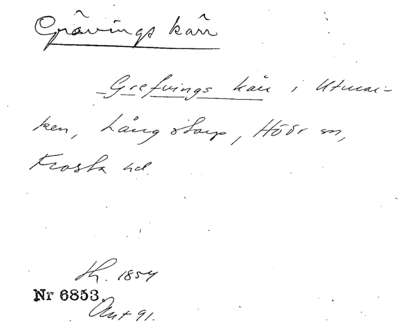 Grävings kärr
Grefvings kärr i Utmar-
ken, Långstorp, Höör sn,
Frosta hd.
Sk. 1854
Nr 6853.
Ant 91.